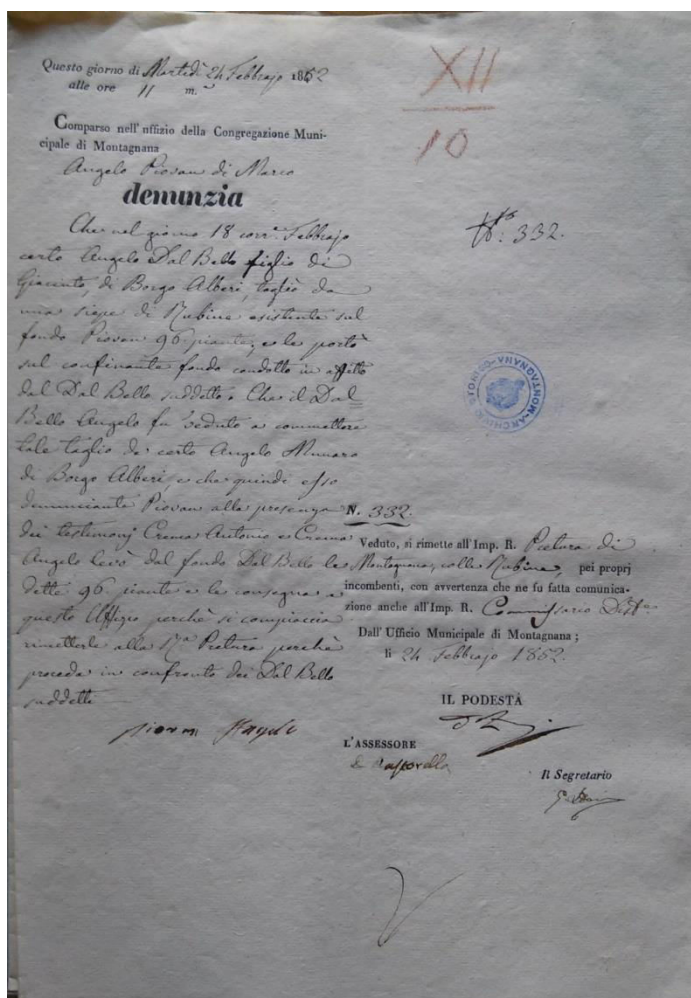 Questo giorno di Martedì 24 Febbrajo 1852
alle ore 11 m.
Comparso nell'uffizio della Congregazione Muni-
cipale di Montagnana
Angelo Piovan di Marco
denunzia
Che nel giorno 18 corr.e Febbrajo
certo Angelo Dal Bello figlio di
Giacinto, di Borgo Alberi, tagliò da
una siepe di Rubine esistente sul
fondo Piovan 96 piante, e le portò
sul confinante fondo condotto in affitto
dal Dal Bello suddetto. Che il Dal
Bello Angelo fu veduto a commettere
tale taglio da certo Angelo Munaro
di Borgo Alberi, e che quindi esso
denunciante Piovan alla presenza
dei testimonj Crema Antonio e Crema
Angelo levò dal fondo Dal Bello le
dette 96 piante e le consegna a
questo Uffizio perchè si compiaccia
rimetterle alla R.a Pretura perchè
proceda in confronto dei Dal Bello
suddetti
Piovan Angelo
XII
10
N.o 332.
MONTAGNANA
ARCHIVIO
N. 332.
Veduto, si rimette all'Imp. R. Pretura di
Montagnana, colle Rubine, pei propri
incombenti, con avvertenza che ne fu fatta comunica-
zione anche all'Imp. R. Commissario Dist.e
Dall'Ufficio Municipale di Montagnana;
li 24 Febbrajo 1852.
IL PODESTÀ
L'ASSESSORE
Il Segretario